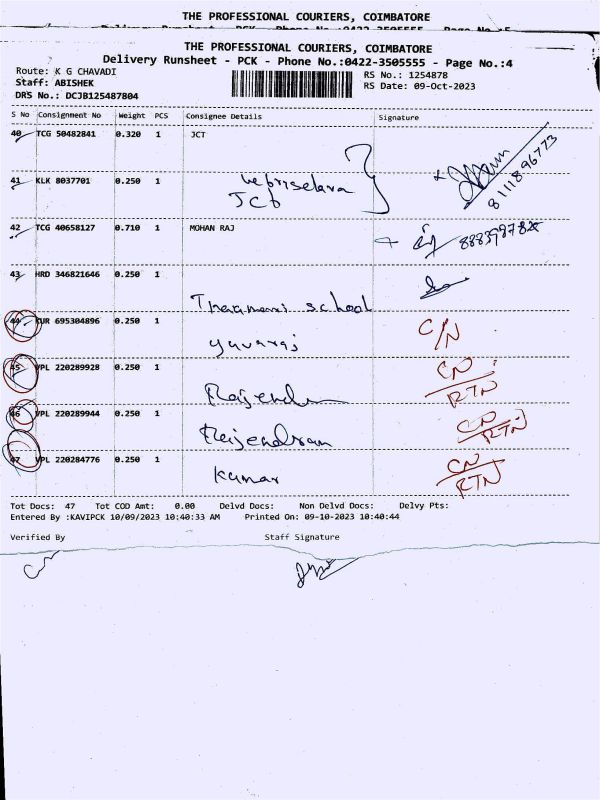 THE PROFESSIONAL COURIERS, COIMBATORE
THE PROFESSIONAL COURIERS, COIMBATORE
Delivery Runsheet - PCK - Phone No.:0422-3505555 - Page No.:4
Route: K G CHAVADI
RS No.: 1254878
Staff: ABISHEK
RS Date: 09-Oct-2023
DRS No.: DCJB125487804
S No Consignment No Weight PCS Consignee Details Signature
40 TCG 50482841 0.320 1 JCT
8111896773
41 KLK 8037701 0.250 1
JCT
42 TCG 40658127 0.710 1 MOHAN RAJ
43 HRD 346821646 0.250 1
school
44 CUR 695304896 0.250 1 C/N
yuvaraj
45 VPL 220289928 0.250 1 CN
RTN
46 VPL 220289944 0.250 1 CN
Raijendran RTN
47 VPL 220284776 0.250 1 CN
Kumar RTN
Tot Docs: 47 Tot COD Amt: 0.00 Delvd Docs: Non Delvd Docs: Delvy Pts:
Entered By :KAVIPCK 10/09/2023 10:40:33 AM Printed On: 09-10-2023 10:40:44
Verified By Staff Signature